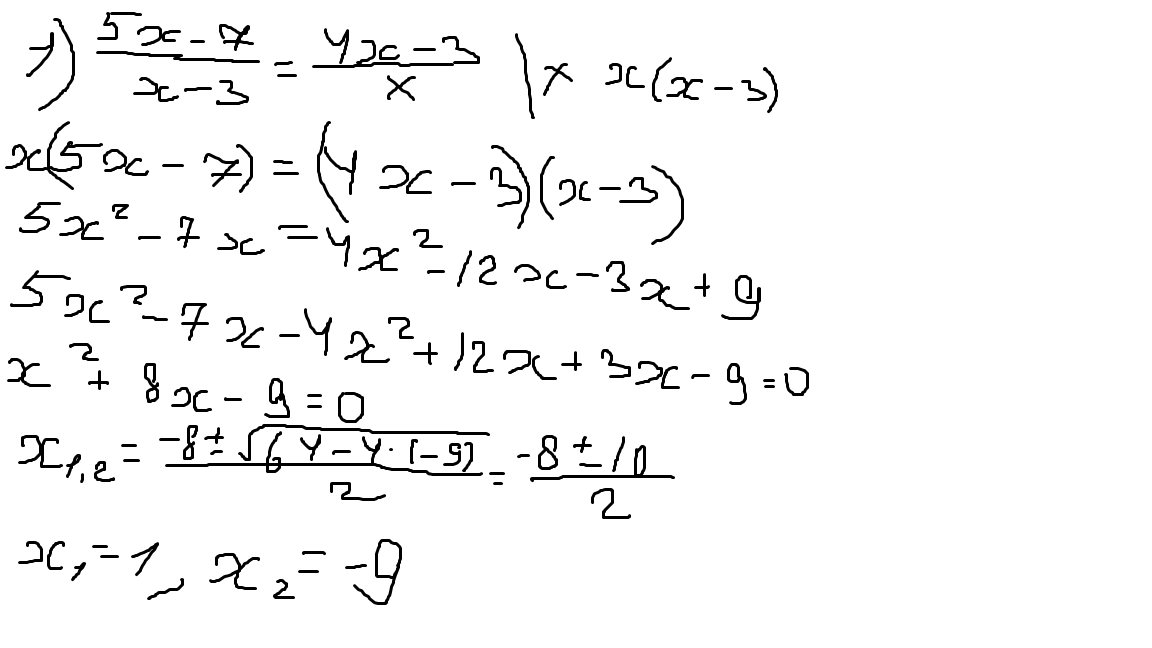 1) (5x-7)/(x-3) = (4x-3)/x | × x(x-3)
x(5x-7) = (4x-3)(x-3)
5x²-7x = 4x²-12x-3x+9
5x²-7x-4x²+12x+3x-9=0
x²+8x-9=0
x₁,₂ = (-8±√(64-4·(-9)))/2 = (-8±10)/2
x₁=1, x₂=-9